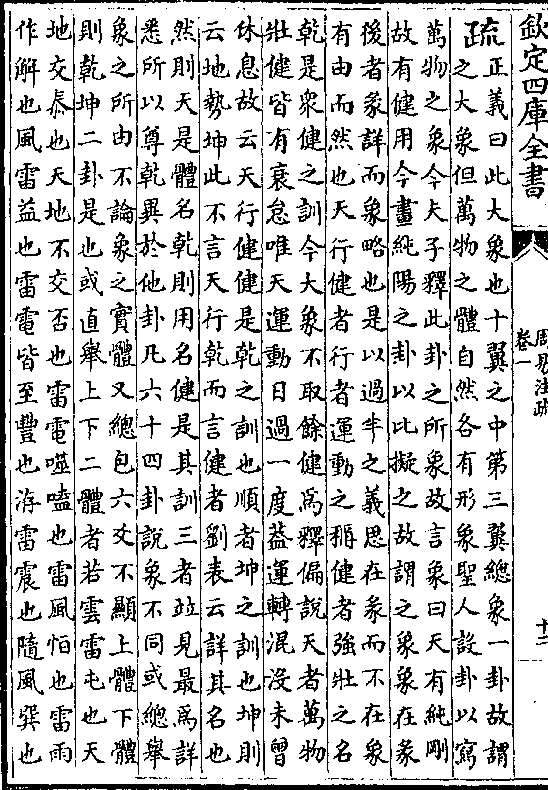 欽定四庫全書
周易注疏
卷一
十二
疏正義曰此大象也十翼之中第三翼總象一卦故謂
之大象但萬物之體自然各有形象聖人設卦以寫
萬物之象今夫子釋此卦之所象故言象曰天有純剛
故有健用今畫純陽之卦以比擬之故謂之象象在彖
後者彖詳而象略也是以過半之義思在彖而不在象
有由而然也天行健者行者運動之稱健者強壯之名
乾是衆健之訓今大象不取餘健為釋偏說天者萬物
壯健皆有衰怠唯天運動日過一度蓋運轉混没未曾
休息故云天行健健是乾之訓也順者坤之訓也坤則
云地勢坤此不言天行乾而言健者劉表云詳其名也
然則天是體名乾則用名健是其訓三者竝見最為詳
悉所以尊乾異於他卦凡六十四卦說象不同或總舉
象之所由不論象之實體又總包六爻不顯上體下體
則乾坤二卦是也或直舉上下二體者若雲雷屯也天
地交泰也天地不交否也雷電噬嗑也雷風恒也雷雨
作解也風雷益也雷電皆至豐也洊雷震也隨風巽也